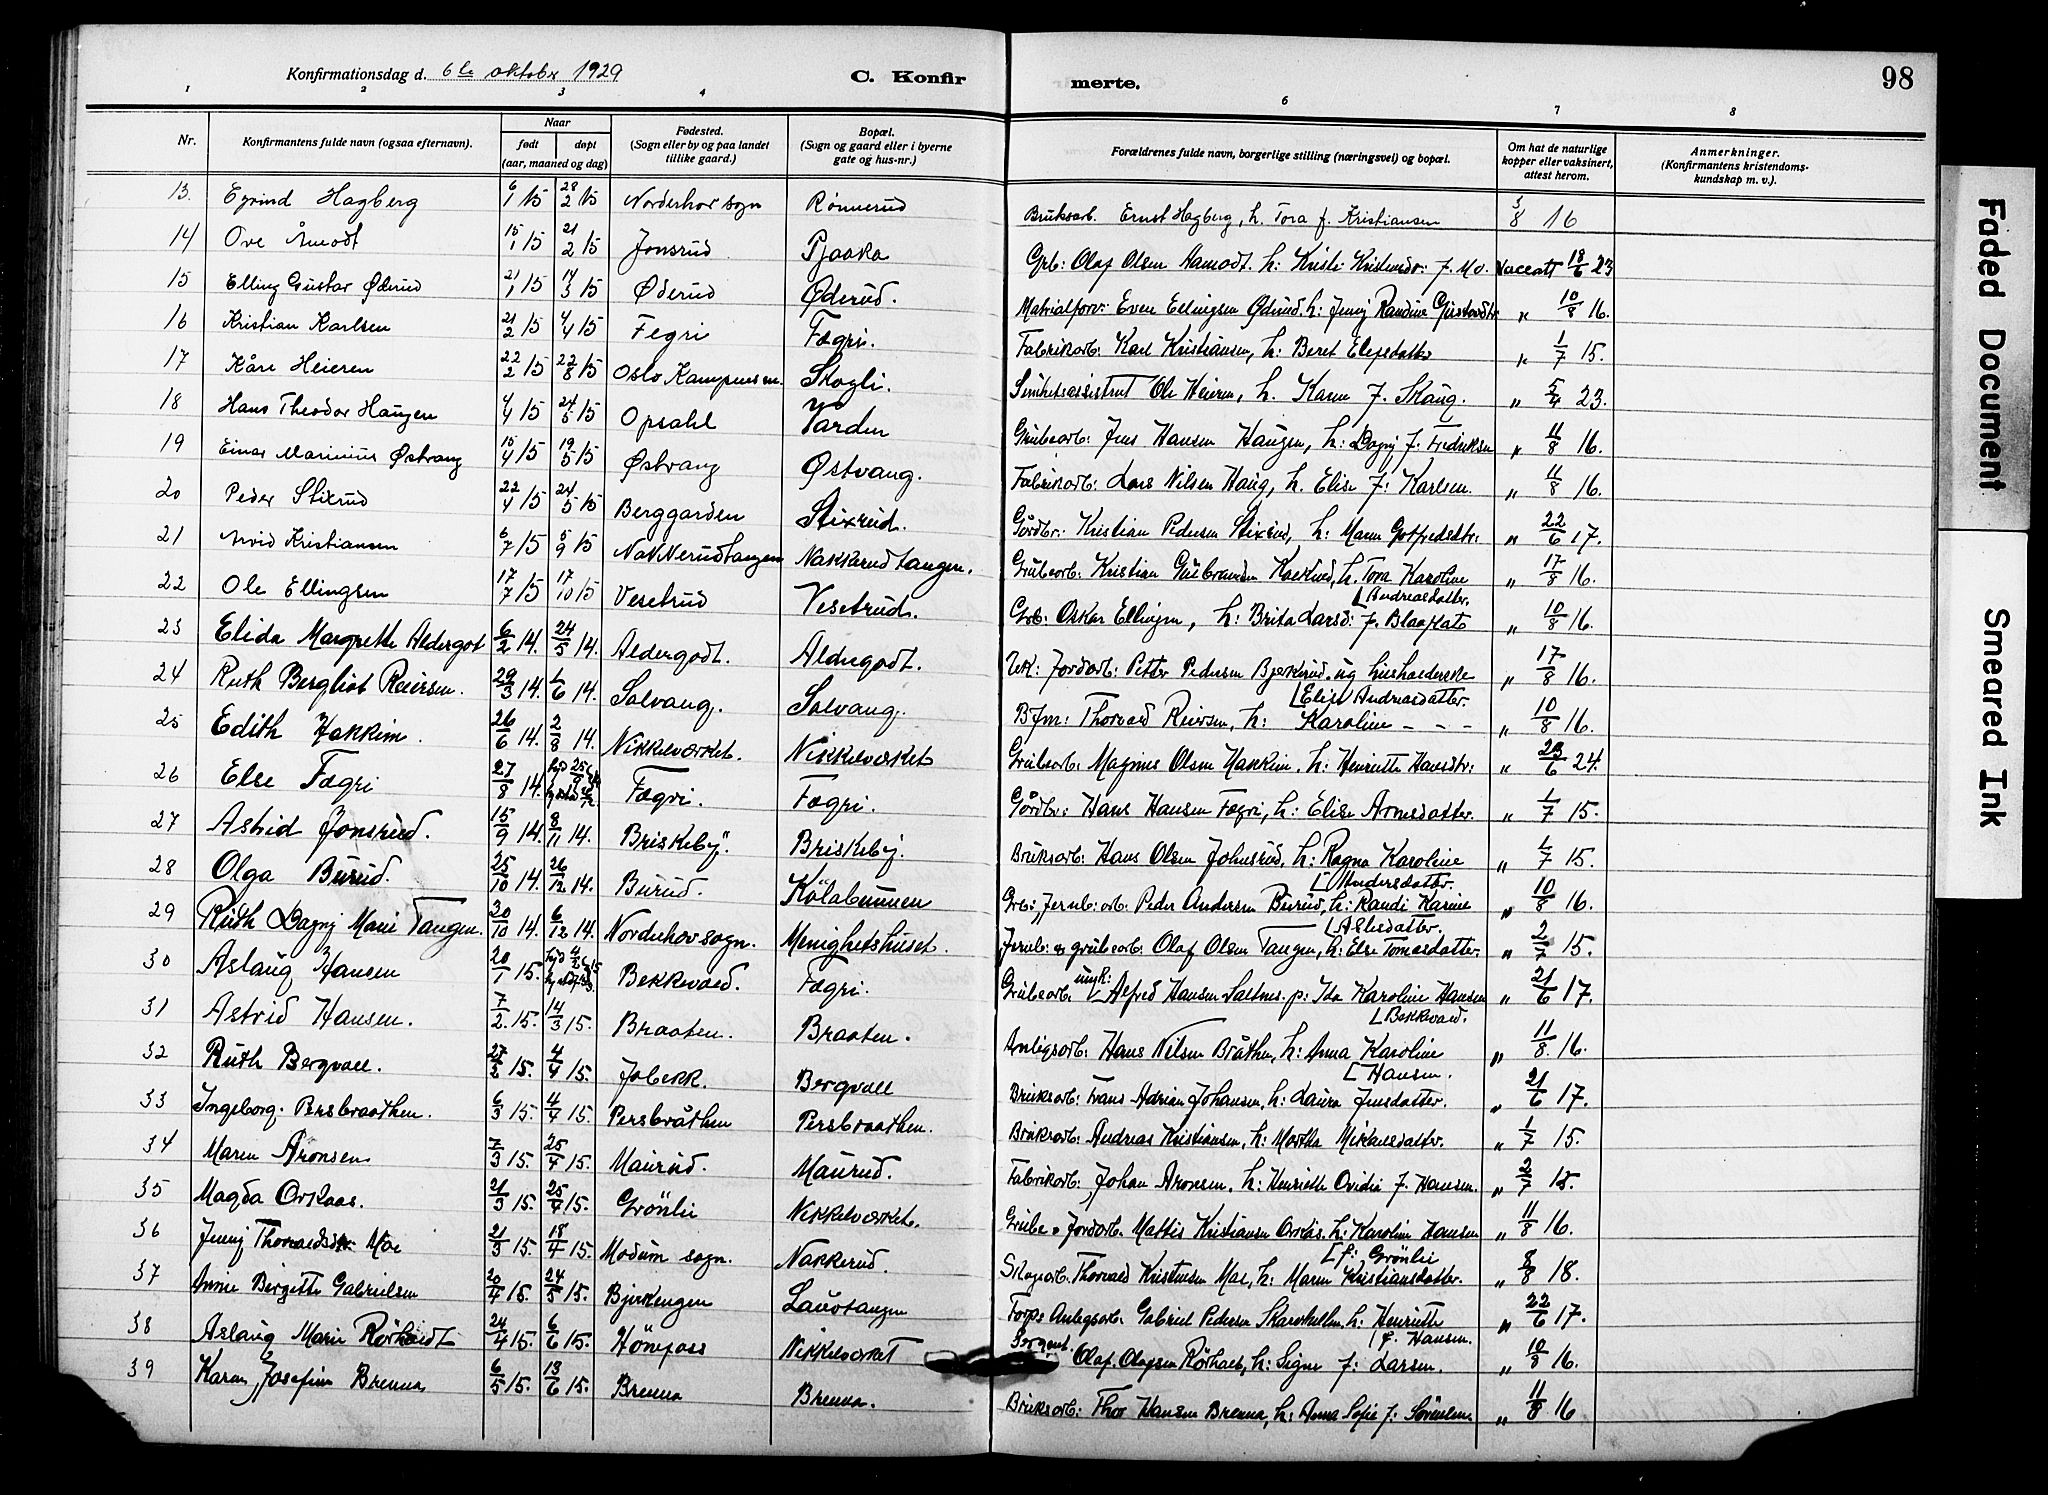 Konfirmationsdag d. 6te oktober 1929
C. Konfir
merte.
98
1 2 3 4 6 7 8
Nr.
Konfirmantens fulde navn (ogsaa efternavn).
Naar
født
døpt
(aar, maaned og dag)
Fødested.
(Sogn eller by og paa landet
tillike gaard.)
Bopæl.
(Sogn og gaard eller i byerne
gate og hus-nr.)
Forældrenes fulde navn, borgerlige stilling (næringsvei) og bopæl.
Om hat de naturlige
kopper eller vaksinert,
attest herom.
Anmerkninger.
(Konfirmantens kristendoms-
kundskap m. v.).
13. Eyvind Hagberg 6/1 15 28/2 15 Norderhov sogn Rønnerud Bruksarb. Ernst Hagberg, h. Tora f. Kristiansen 3/8 16
14 Ove Åmodt 15/1 15 21/2 15 Jonsrud Pjaaka Olaf Olsen Aamodt. h: Kristi f. Mo. Vaccatt 18/6 23
15 Elling Gustav Øderud 21/1 15 14/3 15 Øderud Øderud. Matrialforv: Even Ellingsen Øderud. h: Jenny Randine " 10/8 16.
16 Kristian Karlsen 21/2 15 4/4 15 Fegri Fægri. Fabrikarb: Karl Kristiansen, h: Beret " 1/7 15.
17 Kåre Heieren 22/2 15 22/8 15 Oslo Skogli. Ole Heieren, h. Karen f. Skaug. " 5/4 23.
18 Hans Theodor Haugen 4/4 15 24/5 15 Opsahl Varden Grubearb: Jens Hansen Haugen, h: Dagny f. Fredriksen " 11/8 16.
19 Einar Marinius Østvang 15/4 15 19/5 15 Østvang Østvang. Fabrikarb: Lars Nilsen Haug, h. Elise f: Karlsen. " 11/8 16.
20 Peder Stixrud 22/4 15 24/5 15 Berggarden Stixrud. Gårdbr: Kristian Pedersen Stixrud, h: Maren " 22/6 17.
21 Arvid Kristiansen 6/7 15 5/9 15 Nakkerudtangen Nakkerudtangen. Grubearb: Kristian h. Tora Karoline " 17/8 16.
[Andreasdatter.
22 Ole Ellingsen 17/7 15 17/10 15 Vesetrud Vesetrud. Oskar Ellingsen, h: Brita Larsd: f. " 10/8 16.
23 Elida Margrethe Aldergot 6/2 14. 24/5 14. Aldergodt. Aldergodt. Jordarb: Petter Pedersen Bjerkerud, og " 17/8 16.
[Elise Andreasdatter.
24 Ruth Bergliot Reiersen. 29/3 14. 1/6 14. Solvang. Solvang. Bfm: Thorvald Reiersen, h: Karoline - - - " 10/8 16.
25 Edith Hakkim. 26/6 14. 2/8 14. Nikkelværket. Nikkelværket Grubearb: Magnus Olsen Hakkim. h: Henriette Hansdtr: " 23/6 24.
26 Else Fægri 27/8 14. Fægri. Fægri. Gårdbr: Hans Hansen Fægri, h: Elise Arnesdatter. " 1/7 15.
27 Astrid Jonsrud. 15/9 14. 8/11 14. Briskeby. Briskeby. Bruksarb: Hans Olsen Johnsrud, h: Ragna Karoline " 1/7 15.
[Andersdatter.
28 Olga Burud. 25/10 14. 26/12 14. Burud. Kölabunnen Peder Andersen Burud, h: Randi Karine " 10/8 16.
29 Ruth Dagny Marie Tangen. 30/10 14. 6/12 14. Norderhov sogn. Menighetshuset. Jernb: & grubearb. Olaf Olsen Tangen, h: Else Tomasdatter. " 2/7 15.
30 Aslaug Hansen 20/1 15. Bekkevold. Fægri. Grubearb. ungk: Alfred Hansen Saltnes. p: Ida Karoline Hansen " 21/6 17.
[Bekkevold.
31 Astrid Hansen. 7/2 15. 14/3 15. Braaten. Braaten. Anlægsarb: Hans Nilsen Bråthen, h: Anna Karoline " 11/8 16.
[Hansen.
32 Ruth Bergvall. 27/2 15. 4/4 15. Jobekk. Bergvall Bruksarb: Frans Adrian Johansen, h: Laura Jensdatter. " 21/6 17.
33 Ingeborg Persbraathen. 6/3 15. 4/4 15. Persbråthen Persbraathen. Bruksarb: Andreas Kristiansen, h: Martha Mikkelsdatter. " 1/7 15.
34 Maren Aronsen 7/3 15. 25/4 15. Maurud. Maurud. Fabrikarb: Johan Aronsen. h: Henriette Ovidia f. Hansen. " 2/7 15.
35 Magda Orkaas. 21/3 15. 25/4 15. Grönlie Nikkelværket. Grube & Jordarb. Mattis Kristiansen Orkås. h: Karoline Hansen " 11/8 16.
[f: Grönlie
36 Jenny Thorvaldsdtr Moe 21/3 15. 18/4 15. Modum sogn. Nakkerud. Skogarb. Thorvald Kristensen Moe, h: Maren Kristiansdatter. " 8/8 18.
37 Anne Birgitte Gabrielsen 20/4 15. 24/5 15. Bjerkengen Lauvtangen Anlægsarb. Gabriel Pedersen h: Henriette " 22/6 17.
[f. Hansen.
38 Aslaug Marie Rörholdt 24/4 15. 6/6 15. Hönefoss Nikkelverket Sergent. Olaf Olafsen Rörholt, h: Signe f: Larsen. " 10/8 16.
39 Karen Josefine Brenna 6/5 15. 13/6 15. Brenna Brenna. Bruksarb: Thor Hansen Brenna, h: Anna Sofie f: Sörensen " 11/8 16
Faded Document
Smeared Ink